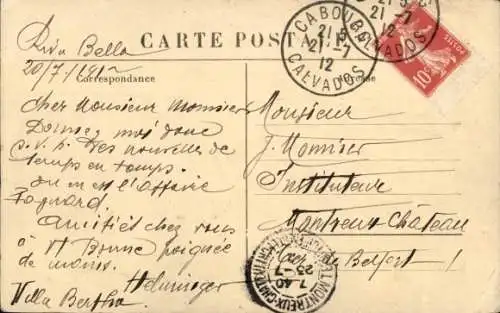 Riva Bella
20/7/1912
CARTE POSTALE
Correspondance
Adresse
Cher Monsieur Monnier
Donnez moi donc
s.v.p. des nouvelles de
temps en temps.
ou en est l'affaire
Amitiés chez vous
à Bonne poignée
de mains.
Villa Bertha
Monsieur
J. Monnier
Instituteur
Montreux-Château
de Belfort
CABOURG
21-7
12
CALVADOS
CALVADOS
21-7
12
10c
MONTREUX-CHATEAU
7 40
23-7